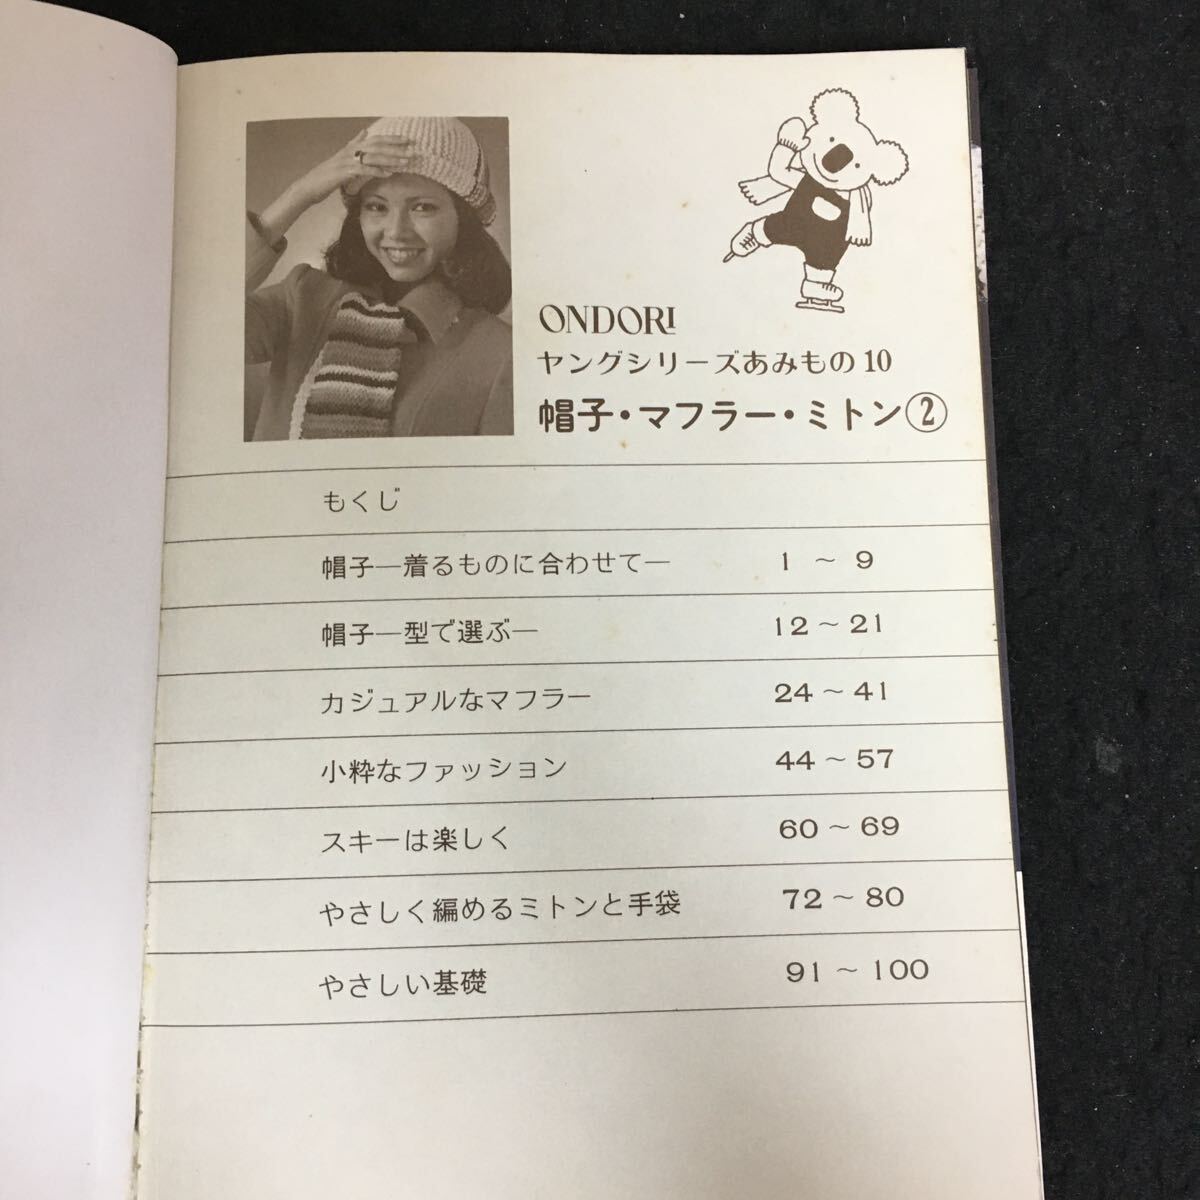 ONDORI
ヤングシリーズあみもの10
帽子・マフラー・ミトン②
もくじ
帽子―着るものに合わせて― 1～9
帽子―型で選ぶ― 12～21
カジュアルなマフラー 24～41
小粋なファッション 44～57
スキーは楽しく 60～69
やさしく編めるミトンと手袋 72～80
やさしい基礎 91～100